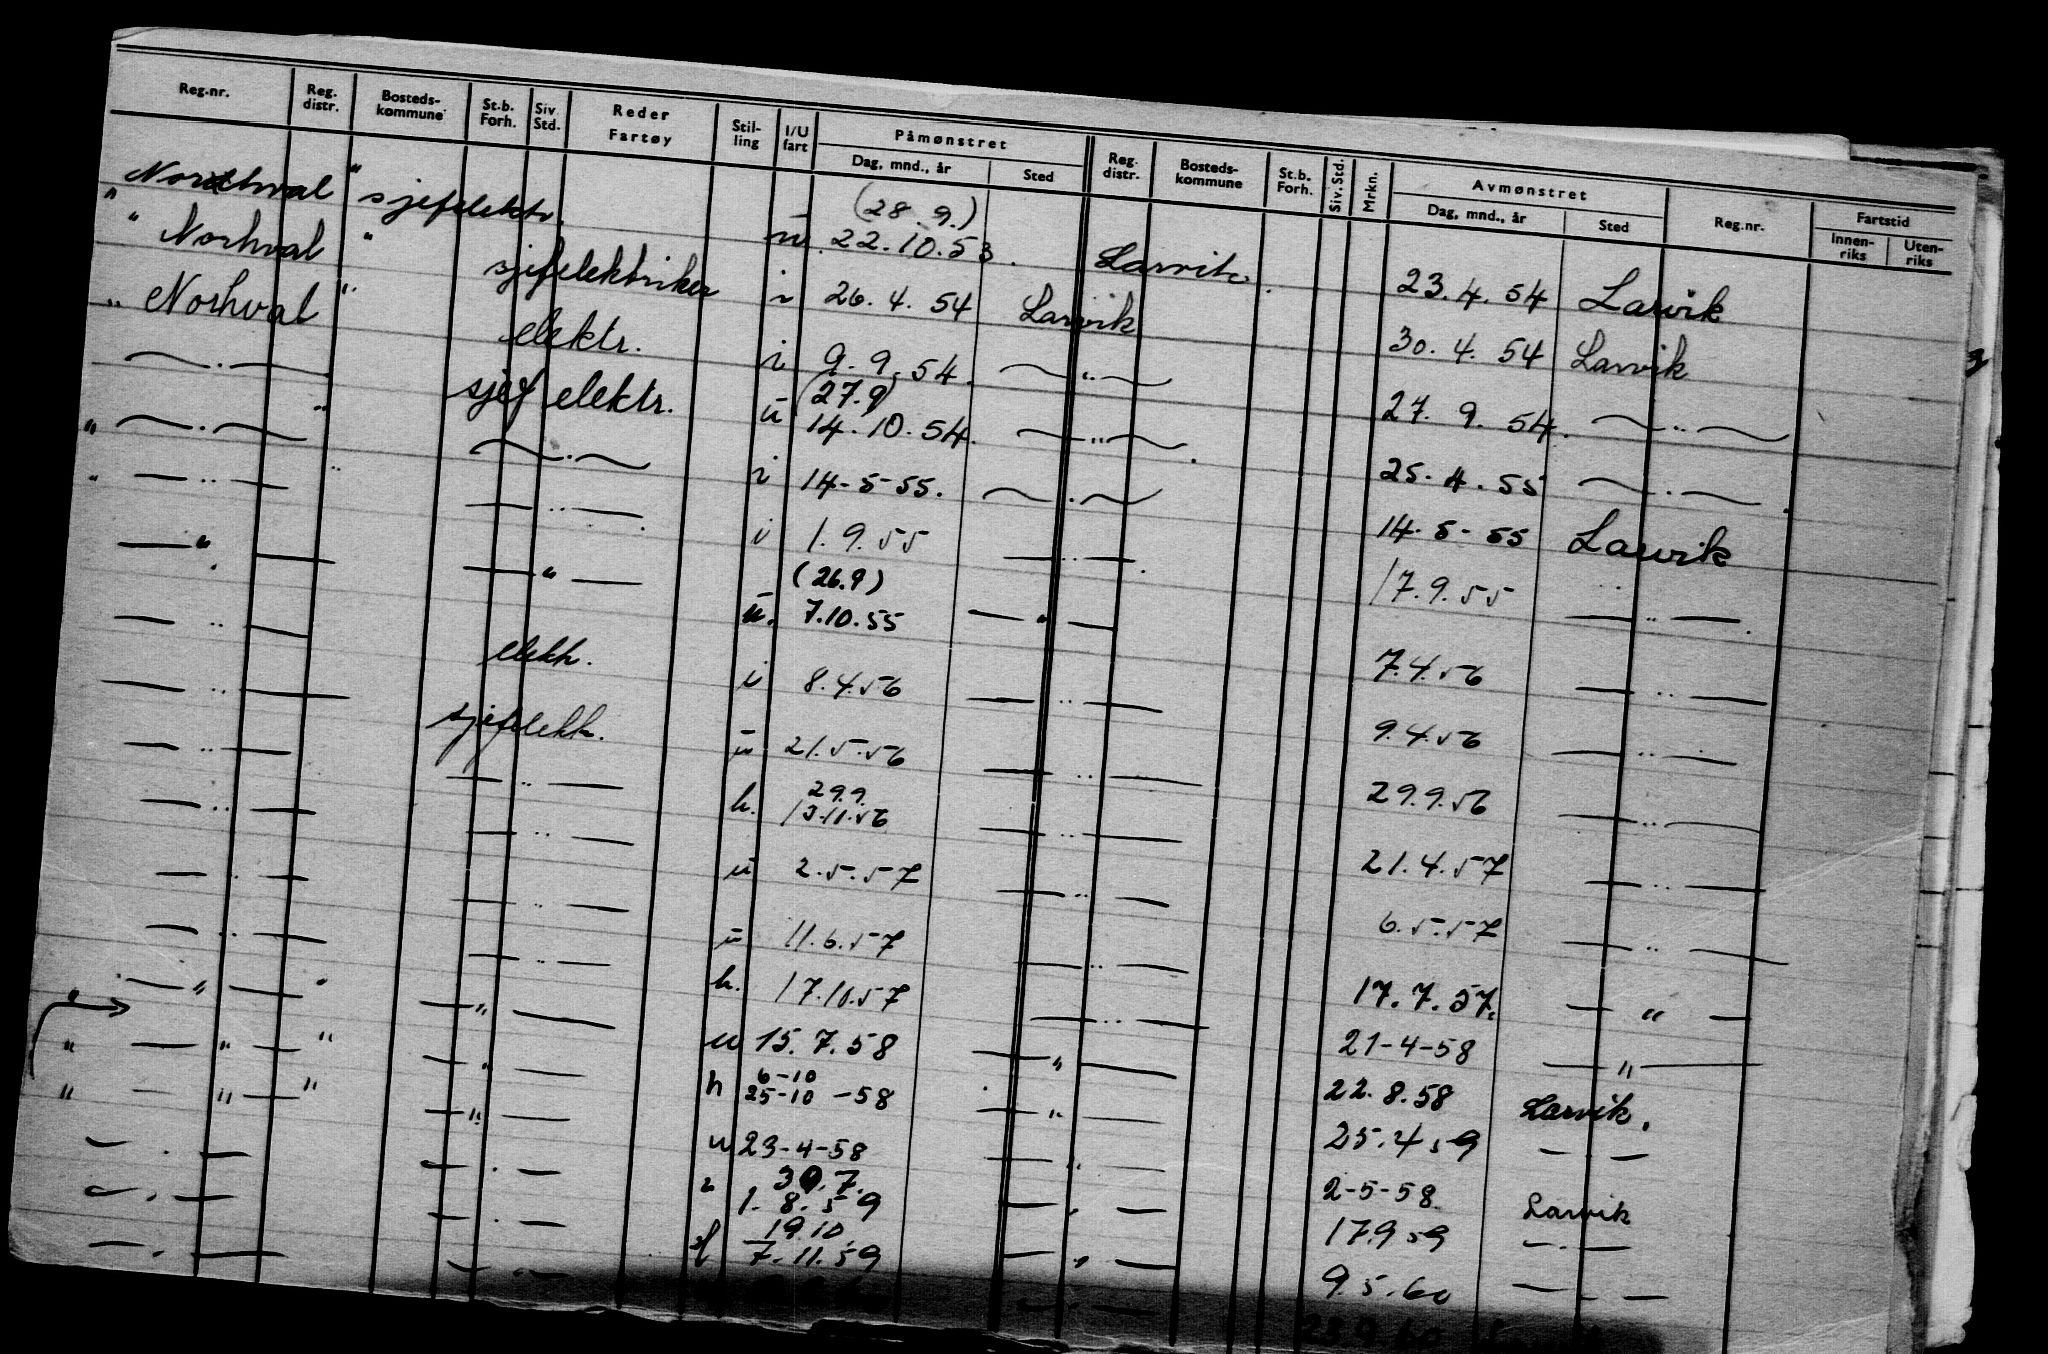 Reg.nr. Reg. distr. Bosteds- kommune St.b. Forh. Siv. Std. Reder Fartøy Stil- ling I/U fart Påmønstret Dag, mnd., år Sted Reg. distr. Bosteds- kommune St.b. Forh. Siv. Std. Mrkn. Avmønstret Dag, mnd., år Sted Reg.nr. Fartstid Innen- riks Uten- riks
" Northval " sjefelektr. u (28.9.) 22.10.53. Larvik. 23.4.54 Larvik
" Norhval " sjefelektriker i 26.4.54 Larvik 30.4.54 Larvik
" Norhval " elektr. i 9.9.54. — " — 27.9.54. — " —
— . — " sjef elektr. u (27.9) 14.10.54. — " — 25.4.55 — . —
" — . — " — . — i 14-5-55. — . — 14.5-55 Larvik
" — " — — " — i 1.9.55 — " — 17.9.55 — " —
— " — — " — u. (26.9) 7.10.55 — " — 7.4.56 — " —
— " — elektr. i 8.4.56 — " — 9.4.56 — " —
— " — sjefelektr. u 21.5.56 — " — 29.9.56 — " —
— " — — " — h. 29.9. 13.11.56 — " — 21.4.57 — " —
— " — — " — u 2.5.57 — " — 6.5.57 — " —
— " — — " — u 11.6.57 — " — 17.7.57. — " —
— " — — " — h. 17.10.57 — " — 21-4-58 — " —
" — " — " — " — u 15.7.58 — " — 22.8.58 Larvik.
" — " — " — " — h 6-10 25-10-58 — " — 25.4.59 — " —
" — " — " — " — u 23-4-58 — " — 2-5-58 Larvik
— . — — . — i 30.7. 1.8.59 — " — 17.9.59 — . —
— . — — . — 19.10. 7.11.59 — " — 9.5.60 — . —
— . — — " — — . — 23.9.60